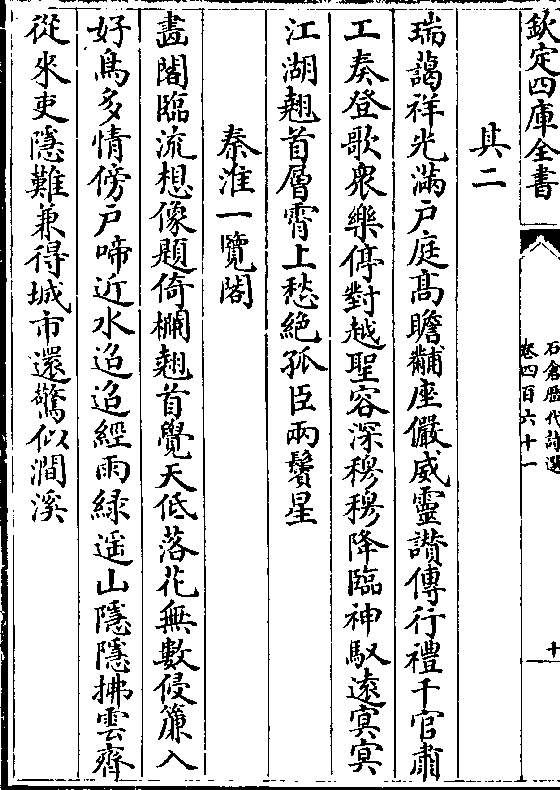 欽定四庫全書
石倉歴代詩選
卷四百六十一
十
其二
瑞藹祥光滿戶庭髙瞻黼座儼威靈讃傳行禮千官肅
工奏登歌衆樂停對越聖容深穆穆降臨神馭逺㝠㝠
江湖翹首層霄上愁絶孤臣兩鬢星
秦淮一覽閣
畵閣臨流想像題倚欄翹首覺天低落花無數侵簾入
好鳥多情傍戶啼近水迢迢經雨緑遥山隱隱拂雲齊
從來吏隱難兼得城市還驚似澗溪